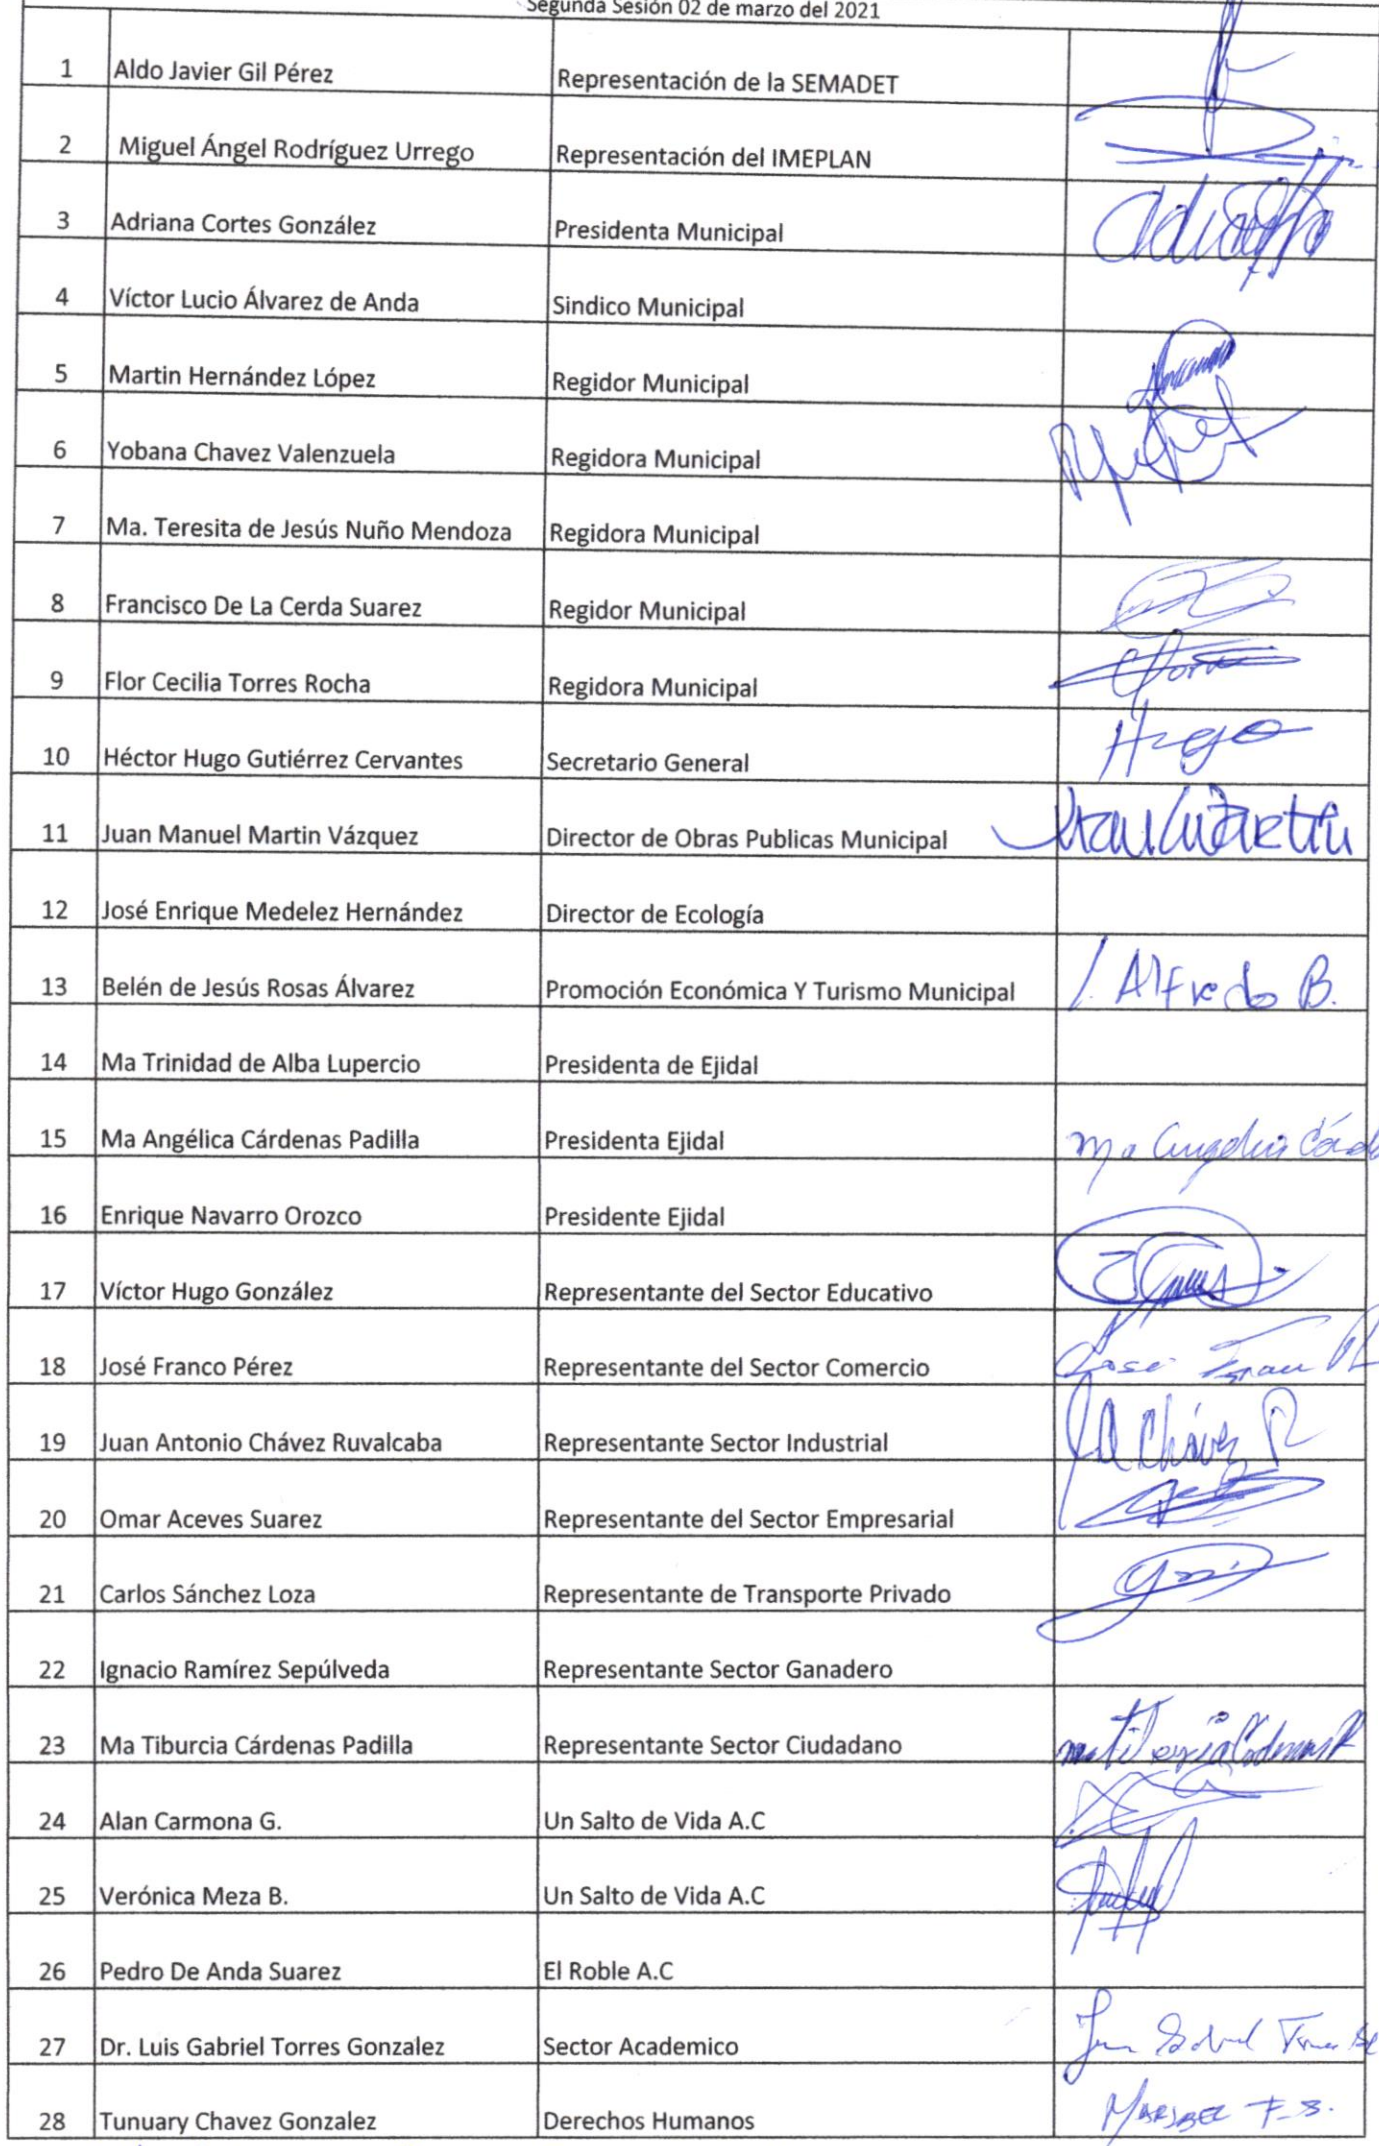 Segunda Sesión 02 de marzo del 2021
1 Aldo Javier Gil Pérez Representación de la SEMADET
2 Miguel Ángel Rodríguez Urrego Representación del IMEPLAN
3 Adriana Cortes González Presidenta Municipal
4 Víctor Lucio Álvarez de Anda Sindico Municipal
5 Martin Hernández López Regidor Municipal
6 Yobana Chavez Valenzuela Regidora Municipal
7 Ma. Teresita de Jesús Nuño Mendoza Regidora Municipal
8 Francisco De La Cerda Suarez Regidor Municipal
9 Flor Cecilia Torres Rocha Regidora Municipal
10 Héctor Hugo Gutiérrez Cervantes Secretario General Hugo
11 Juan Manuel Martin Vázquez Director de Obras Publicas Municipal
12 José Enrique Medelez Hernández Director de Ecología
13 Belén de Jesús Rosas Álvarez Promoción Económica Y Turismo Municipal Alfredo B.
14 Ma Trinidad de Alba Lupercio Presidenta de Ejidal
15 Ma Angélica Cárdenas Padilla Presidenta Ejidal
16 Enrique Navarro Orozco Presidente Ejidal
17 Víctor Hugo González Representante del Sector Educativo
18 José Franco Pérez Representante del Sector Comercio
19 Juan Antonio Chávez Ruvalcaba Representante Sector Industrial Chávez R
20 Omar Aceves Suarez Representante del Sector Empresarial
21 Carlos Sánchez Loza Representante de Transporte Privado
22 Ignacio Ramírez Sepúlveda Representante Sector Ganadero
23 Ma Tiburcia Cárdenas Padilla Representante Sector Ciudadano
24 Alan Carmona G. Un Salto de Vida A.C
25 Verónica Meza B. Un Salto de Vida A.C
26 Pedro De Anda Suarez El Roble A.C
27 Dr. Luis Gabriel Torres Gonzalez Sector Academico
28 Tunuary Chavez Gonzalez Derechos Humanos MARIBEL F.S.